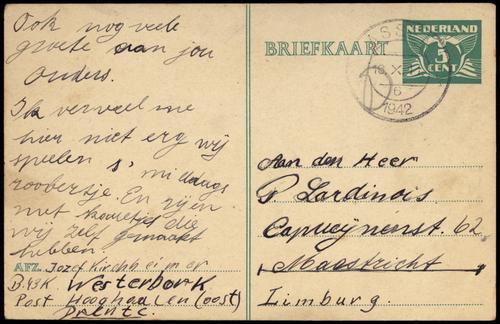 Ook nog vele
groete aan jou
Ouders.
Ik verveel me
hier niet erg wij
spelen s' middags
roobertje. En zijen
met touwtjes die
wij zelf gemaakt
hebben.
AFZ. Jozef Kirchheimer
B.43K Westerbork
Post Hooghaalen (oost)
Drente
BRIEFKAART
NEDERLAND
5
CENT
ASS
18 X
6
1942
Aan den Heer
P. Lardinois
Capucijnenst. 62
Maastricht
Limburg.